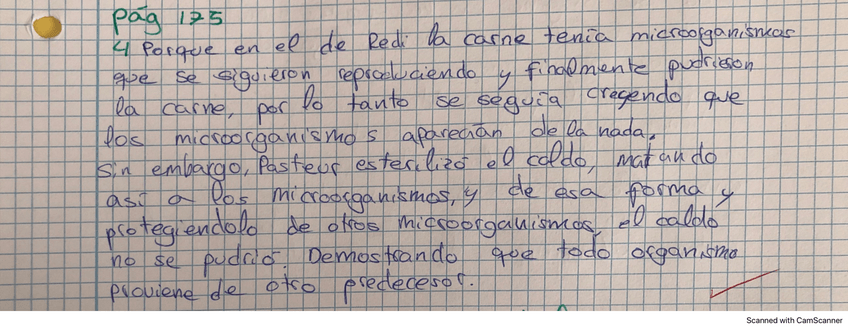 pág 125
4 Porque en el de Redi la carne tenía microorganismos
que se siguieron reproduciendo y finalmente pudrieron
la carne, por lo tanto se seguía creyendo que
los microorganismos aparecían de la nada.
Sin embargo, Pasteur esterilizó el caldo, matando
así a los microorganismos, y de esa forma y
protegiendolo de otros microorganismos, el caldo
no se pudrió. Demostrando que todo organismo
proviene de otro predecesor.
Scanned with CamScanner